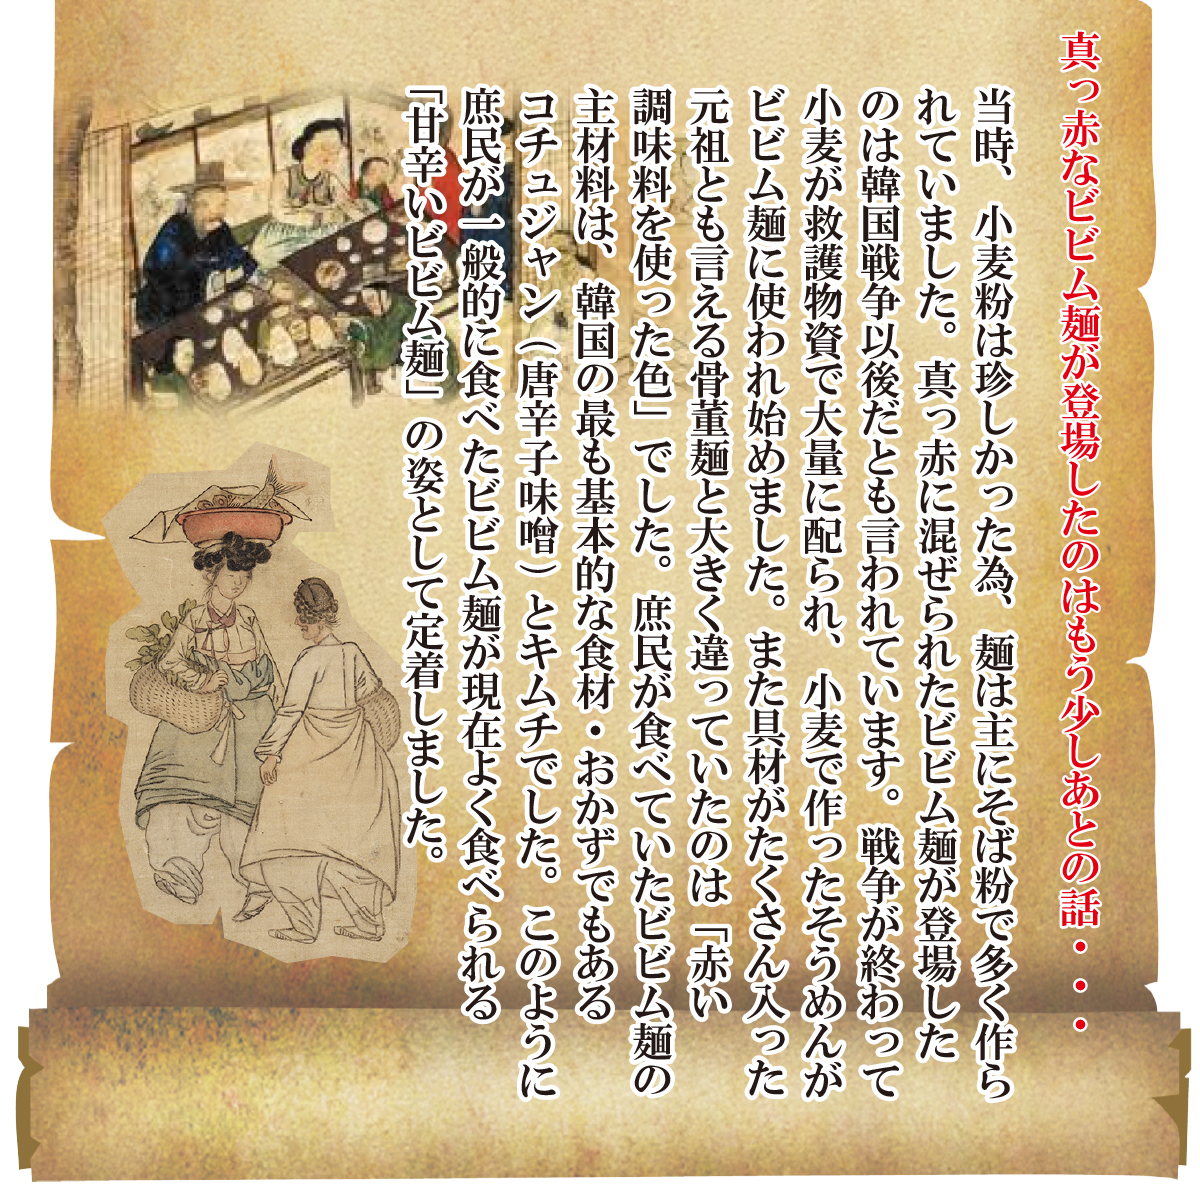 真っ赤なビビム麺が登場したのはもう少しあとの話・・・
当時、小麦粉は珍しかった為、麺は主にそば粉で多く作ら
れていました。真っ赤に混ぜられたビビム麺が登場した
のは韓国戦争以後だとも言われています。戦争が終わって
小麦が救護物資で大量に配られ、小麦で作ったそうめんが
ビビム麺に使われ始めました。また具材がたくさん入った
元祖とも言える骨董麺と大きく違っていたのは「赤い
調味料を使った色」でした。庶民が食べていたビビム麺の
主材料は、韓国の最も基本的な食材・おかずでもある
コチュジャン（唐辛子味噌）とキムチでした。このように
庶民が一般的に食べたビビム麺が現在よく食べられる
「甘辛いビビム麺」の姿として定着しました。